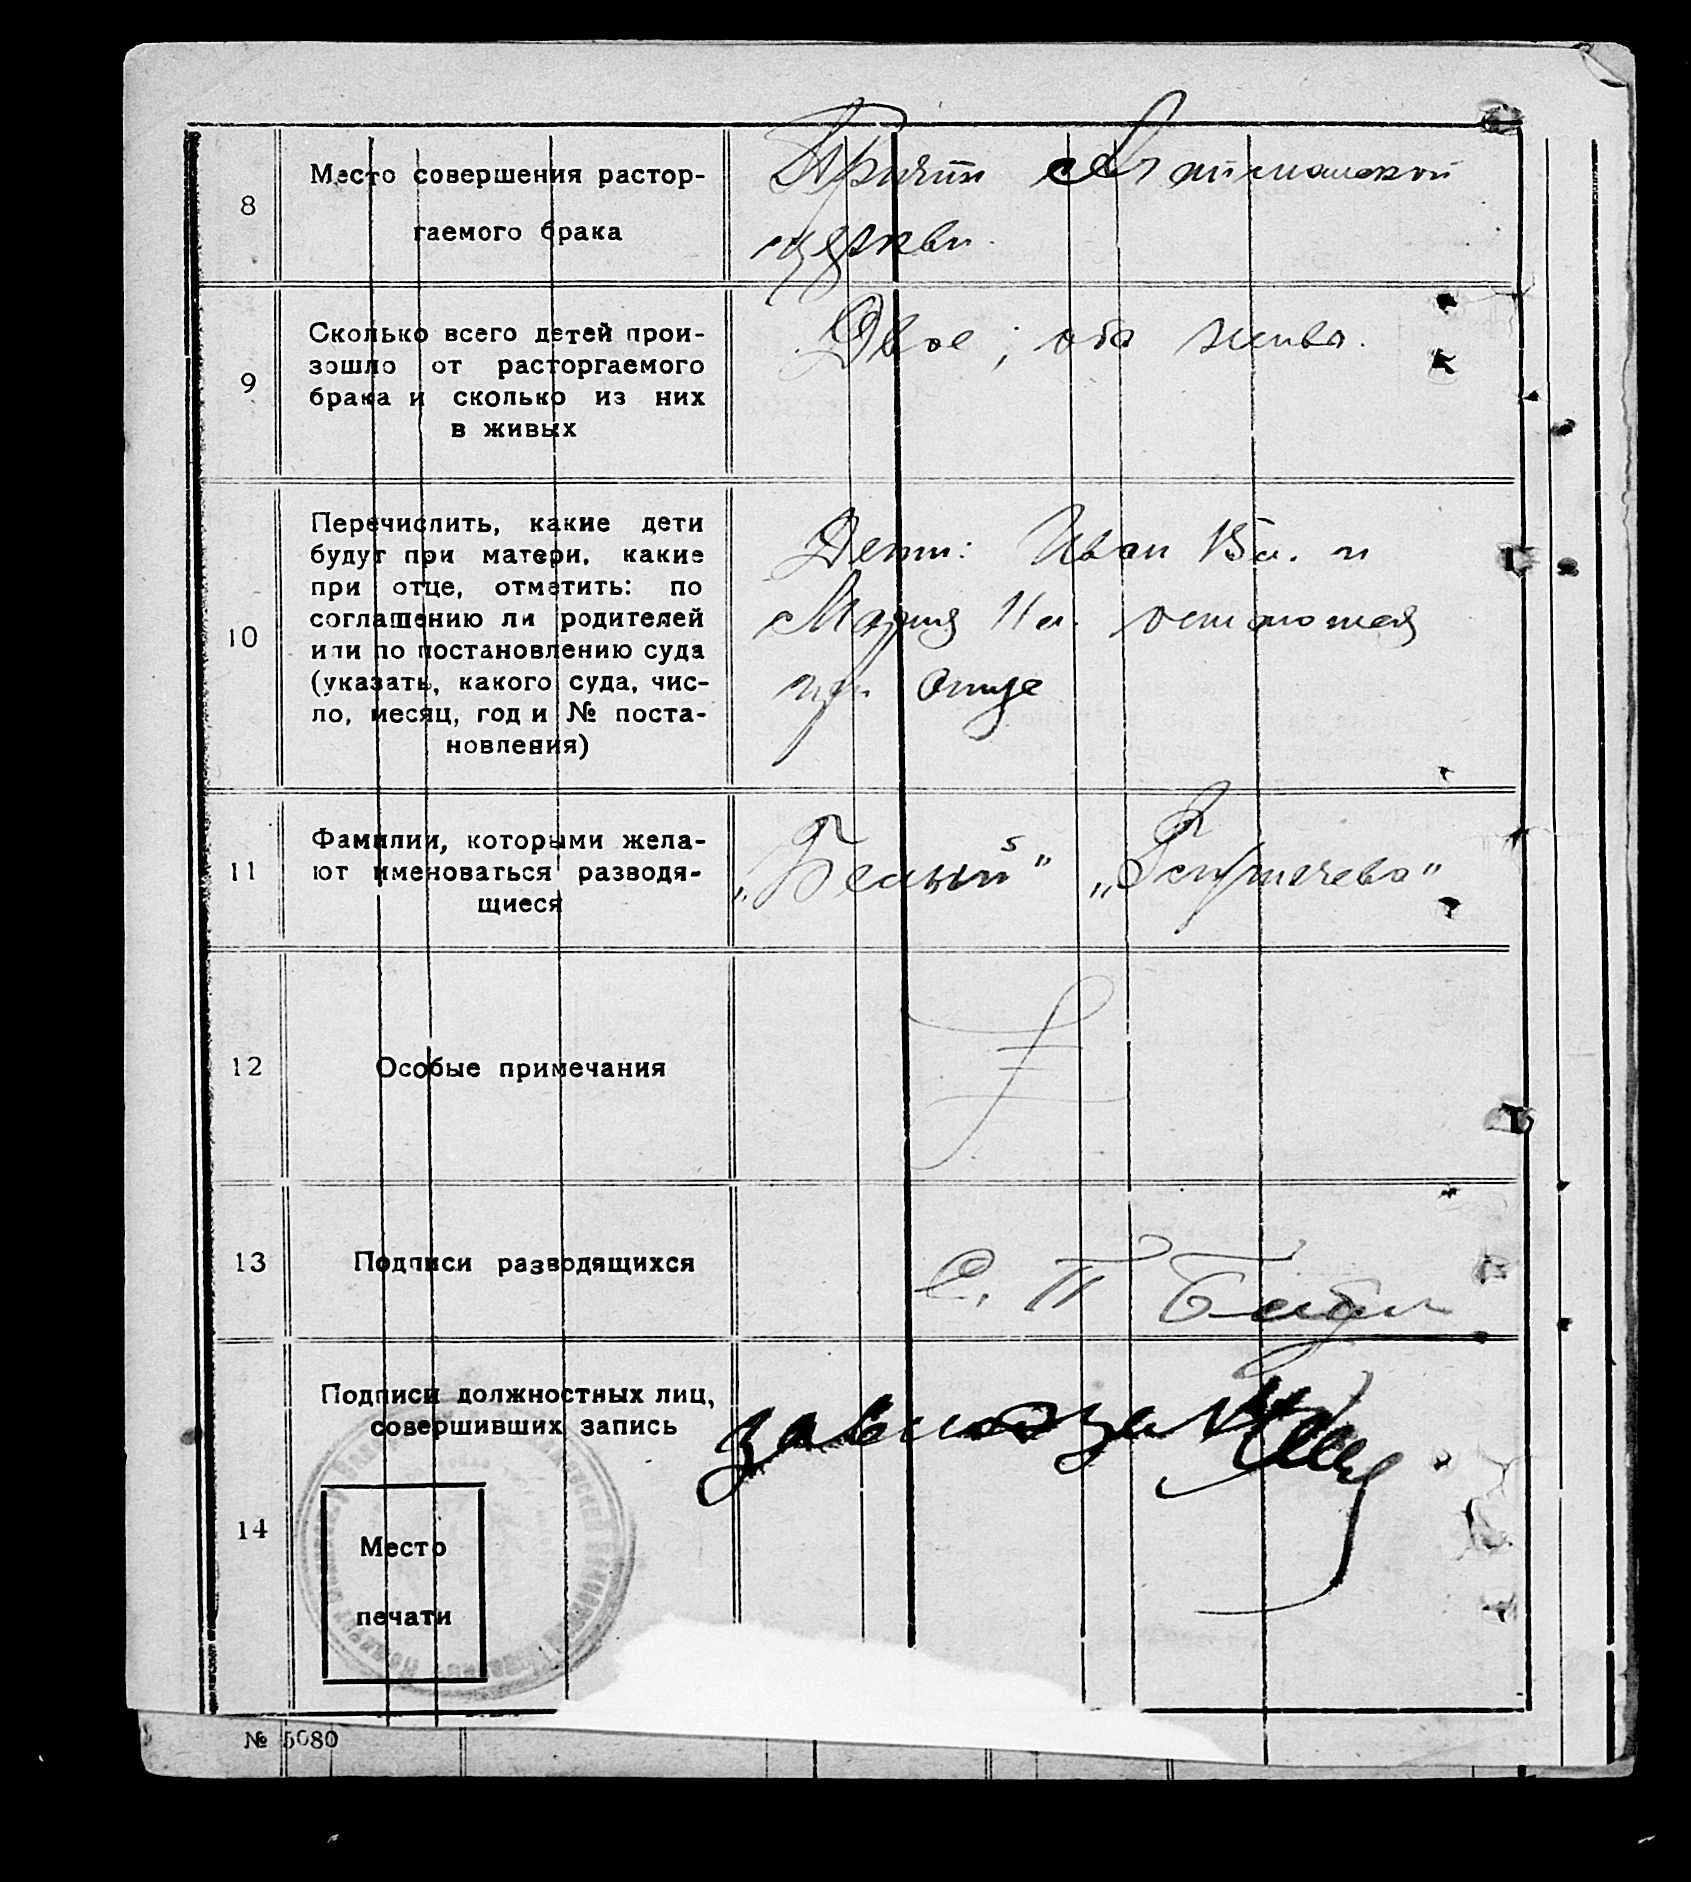 8
Место совершения растор-
гаемого брака
Причт
церкви.
9
Сколько всего детей прои-
зошло от расторгаемого
брака и сколько из них
в живых
Двое; оба живы.
10
Перечислить, какие дети
будут при матери, какие
при отце, отметить: по
соглашению ли родителей
или по постановлению суда
(указать, какого суда, чис-
ло, месяц, год и № поста-
новления)
Дети: Иван 15 л. и
Мария 11 л. остаются
при отце
11
Фамилии, которыми жела-
ют именоваться разводя-
щиеся
„Белый“
12
Особые примечания
13
Подписи разводящихся
С. П.
14
Подписи должностных лиц,
совершивших запись
Место
печати
№ 5080